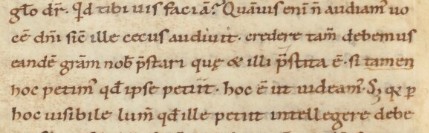 gło dr̅. Qd tibi uis faciā? Quāuis eni n̅ audiam᷒ uo
cē dn̅i sic̅ ille cecus audiuit. credere tam̅ debemus
eandē gr̅am nob̅ p̅stari quę & illi p̅stita ē. si tamen
hoc petim᷒ qd̅ ipse petiit. hoc ē ut uideam᷒. S; qa p
hoc uisibile lum̅ qd̅ ille petiit intellegere debe